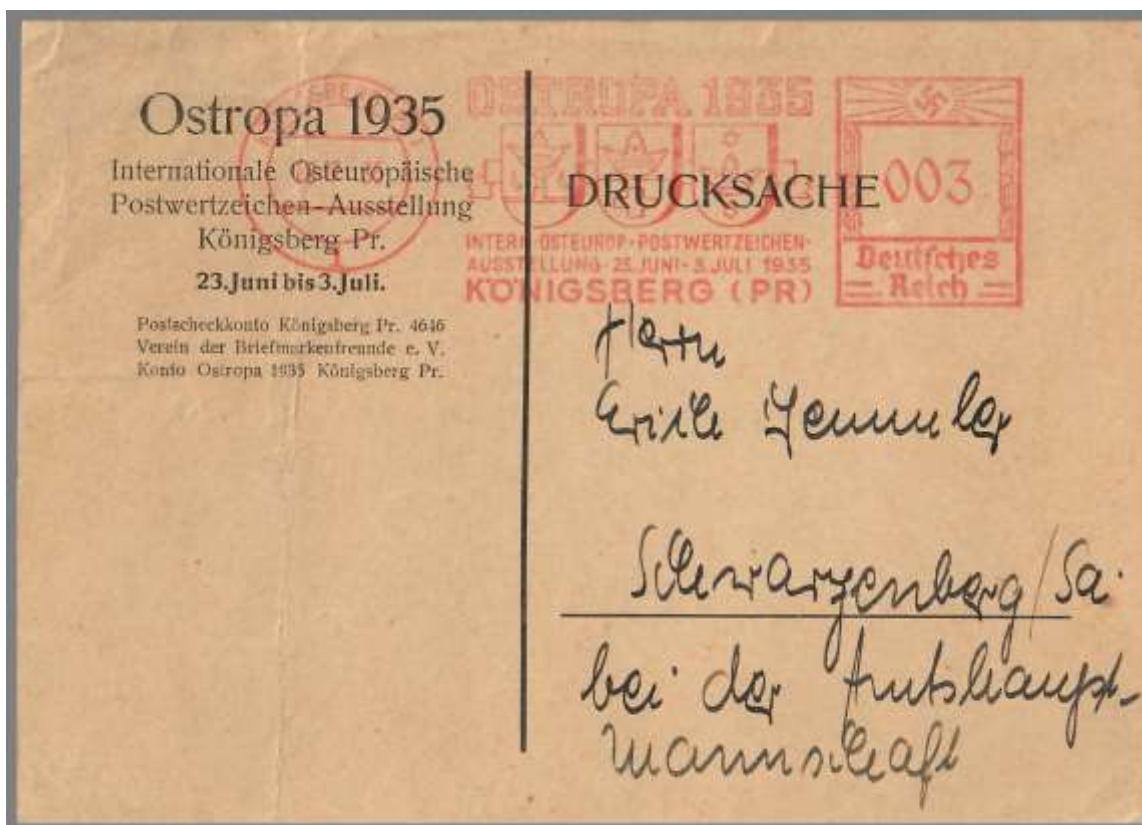 Ostropa 1935
Internationale Osteuropäische
Postwertzeichen-Ausstellung
Königsberg Pr.
23. Juni bis 3. Juli.
Postscheckkonto Königsberg Pr. 4646
Verein der Briefmarkenfreunde e. V.
Konto Ostropa 1935 Königsberg Pr.
OSTROPA 1935
INTERN·OSTEUROP·POSTWERTZEICHEN-
AUSSTELLUNG·23.JUNI-3.JULI 1935
KÖNIGSBERG (PR)
003
Deutsches
Reich
DRUCKSACHE
Herrn
Schwarzenberg/Sa.
bei der Amtshaupt-
mannschaft